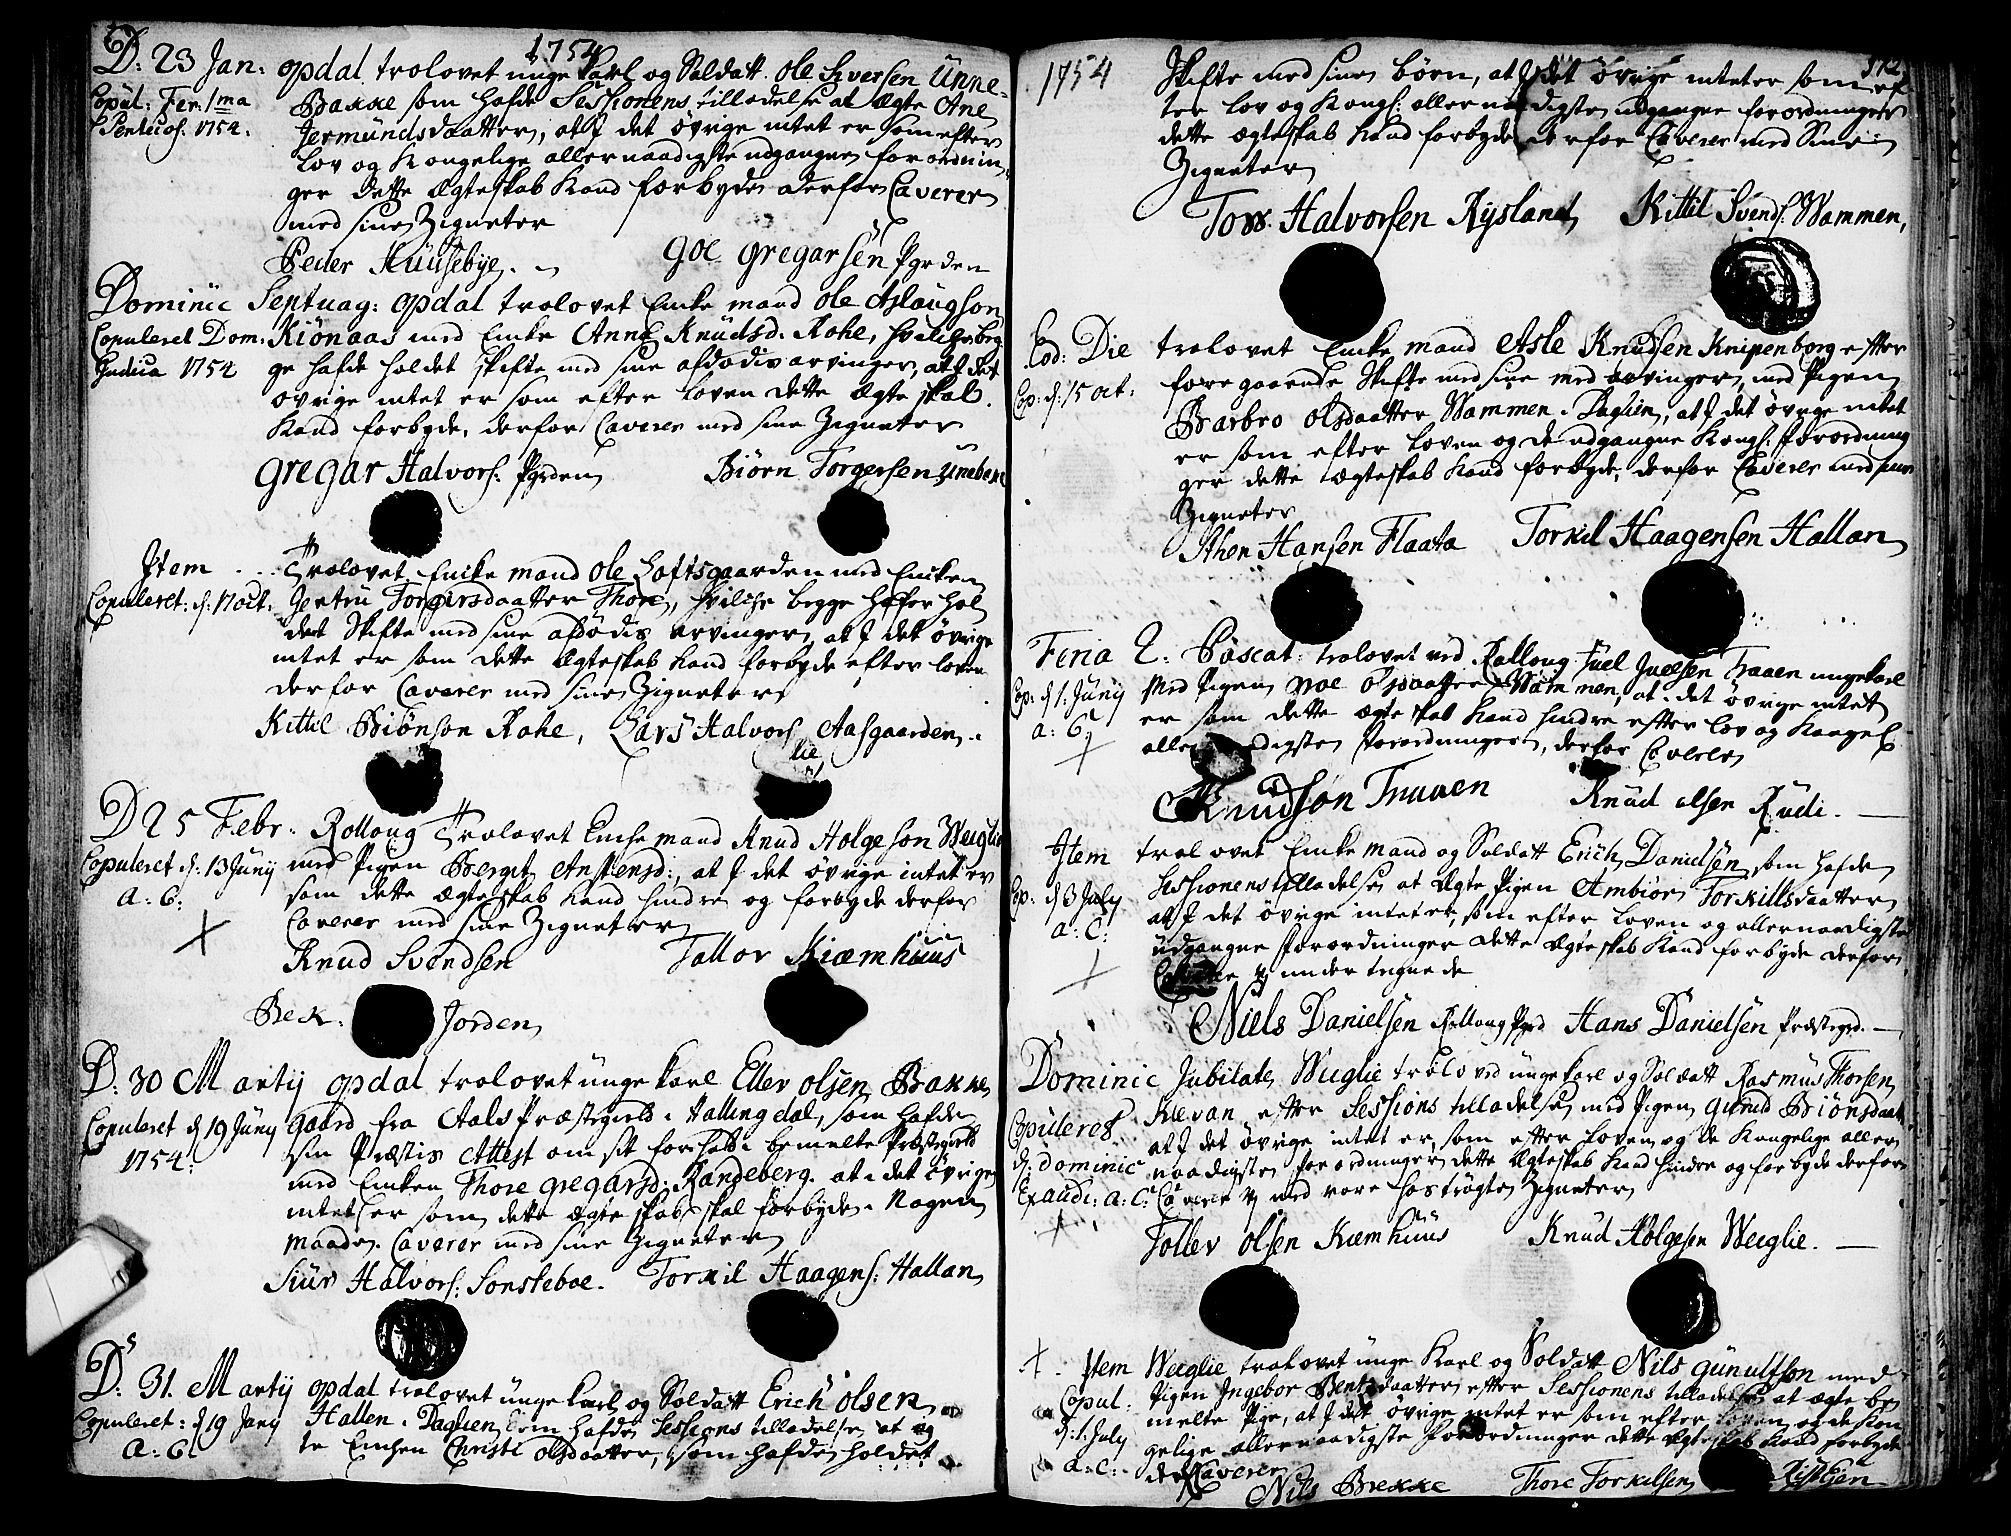 1754
D: 23 Jan: opdal trolovet unge karl og Soldatt Ole Iversen Ünne-
Copul: Fer: 1ma Bakke som hafde Sessionens tilladelse at ægte Ane
Pentecos: 1754. Jermündsdaatter, at J det øvrige intet er som efter
lov og Kongelige allernaadigste udgangne forordnin-
ger dette Ægteskab kand forbyde derfor Caverer
med sine Zigneter
Peder Huusebye. Goe Gregarsen Pgrden
Dominic Septuag: opdal trolovet Encke mand Ole Aslaugson
Copuleret Dom: Kiönaas med Encke Anne Knudsd. Rohe, hvilche beg
Judica 1754 ge hafde holdet skifte med sine afdødis arvinger, at J det
øvrige intet er som efter loven dette Ægte skab
kand forbyde, derfor Caverer med sine Zigneter
Gregar Halvors: Pgrden Biörn Torgersen Ünebere
Item Trolovet Encke mand Ole Loftsgaarden med Encken
Copuleret: d: 17 oct: Jertru Torgersdaatter Thore, hvilche begge hafver hol
det Skifte med sine afdödis arvinger, at J det øvrige
intet er som dette Ægteskab kand forbyde efter loven
derfor Caverer med sine Zigneter
Kittil Biönson Rohe, Lars Halvors Aasgaarden
D 25 Febr: Rollong Trolovet Enche mand Knud Holgeson Weiglie
Copuleret d: 13 Junij med Pigen Berget Anstensd:, at J det øvrige intet er
a: c: som dette Ægteskab kand hindre og forbyde derfor
Caverer med sine Zigneter
Knud Svendsen Tallor Kiæmhuus
Bek: Jorden
D: 30 Martij opdal trolovet unge karl Ellev olsen Bakke
Copuleret d 19 Junij gaard fra Aals Præstegield i Hallingdal, som hafde
1754: sin Præstis Attest om sit forhold i bemelte Præstegield
med Encken Thore Gregarsd: Randeberg. at i det övrige
intet er som dette Ægte skab skal forbyde i Nogen
maade. Caverer med sine Zigneter
Siur Halvors: Sonsteboe. Torkil Haagens: Hallan
D: 31. Martij opdal trolovet unge karl og Soldatt Erich olsen
Copuleret: d 19 Junij Hallen i Daglien som hafde Sessions tilladelse at æg
a: c te Enchen Christi olsdaatter, som hafde holdet
1754
Skifte med sine børn, at J det övrige intet er som ef
ter lov og Kongl: allernaadigste udgangne forordninger
dette ægteskab kand forbyde derfor Caverer med Sine
Zigneter
Tow Halvorsen Rysland Kittil Svends: Wammen,
Eod: Die trolovet Encke mand Asle Knudsen Knipenborg efter
Cop: d: 15 oct: foregaaende Skifte med sine med arvinger, med Pigen
Barbro olsdaatter Wammen i Daglien, at J det øvrige intet
er som efter loven og de udgangne Kongl: forordnin
ger dette ægteskab kand forbyde, derfor Caverer med sine
Zigneter
Sthen Hansen Flaata Torkil Haagensen Hallan
Feria 2: Pascat: trolovet ved Rollong Juel Juelsen Traaen ungekarl
Cop: d 1. Junij med Pigen Moe olsdaatter Wammen, at i det övrige intet
a: c er som dette ægteskab kand hindre efter lov og Kongel
allernaadigste forordninger, derfor Caverer
Knudsøn Traaen Knud olsen Rudi.
Item trolovet Encke mand og Soldatt Erich Danielsen, som hafde
Cop: d 3 July Sessionens tilladelse at Ægte Pigen Ambiör Torkillsdaatter
a: c: at J det övrige intet er, som efter loven og allernaadigste
udgangne forordninger dette Ægteskab kand forbyde derfor
undertegnede
Niels Danielsen Rollong Pgrd Hans Danielsen Præstegrd.
Dominic Jubilate Weiglie trolovet unge karl og Soldatt Rasmus Thorsen
Copuleret Kievan, efter Sessions tilladelse med Pigen Gunild Biönsdaat
d: Dominic at J det övrige intet er, som efter Loven og de Kongelige aller
Exaudi: a: c: naadigste forordninger dette Ægteskab kand hindre og forbyde derfor
Caverer med vore hoströgte Zigneter
Tollev olsen Kiæmhuus Knud Holgesen Weiglie.
Item Weiglie trolovet unge Karl og Soldatt Nils Gunulfson med
Copul: Pigen Ingebor Bentsdaatter efter Sessionens tilladelse at ægte be
d: 1. July melte Pige, at J det övrige intet er som efter loven og de Kon
a: c: gelige allernaadigste forordninger dette ægteskab kand forbyde
derfor Caverer
Nils Brekke Thore Torkilsen